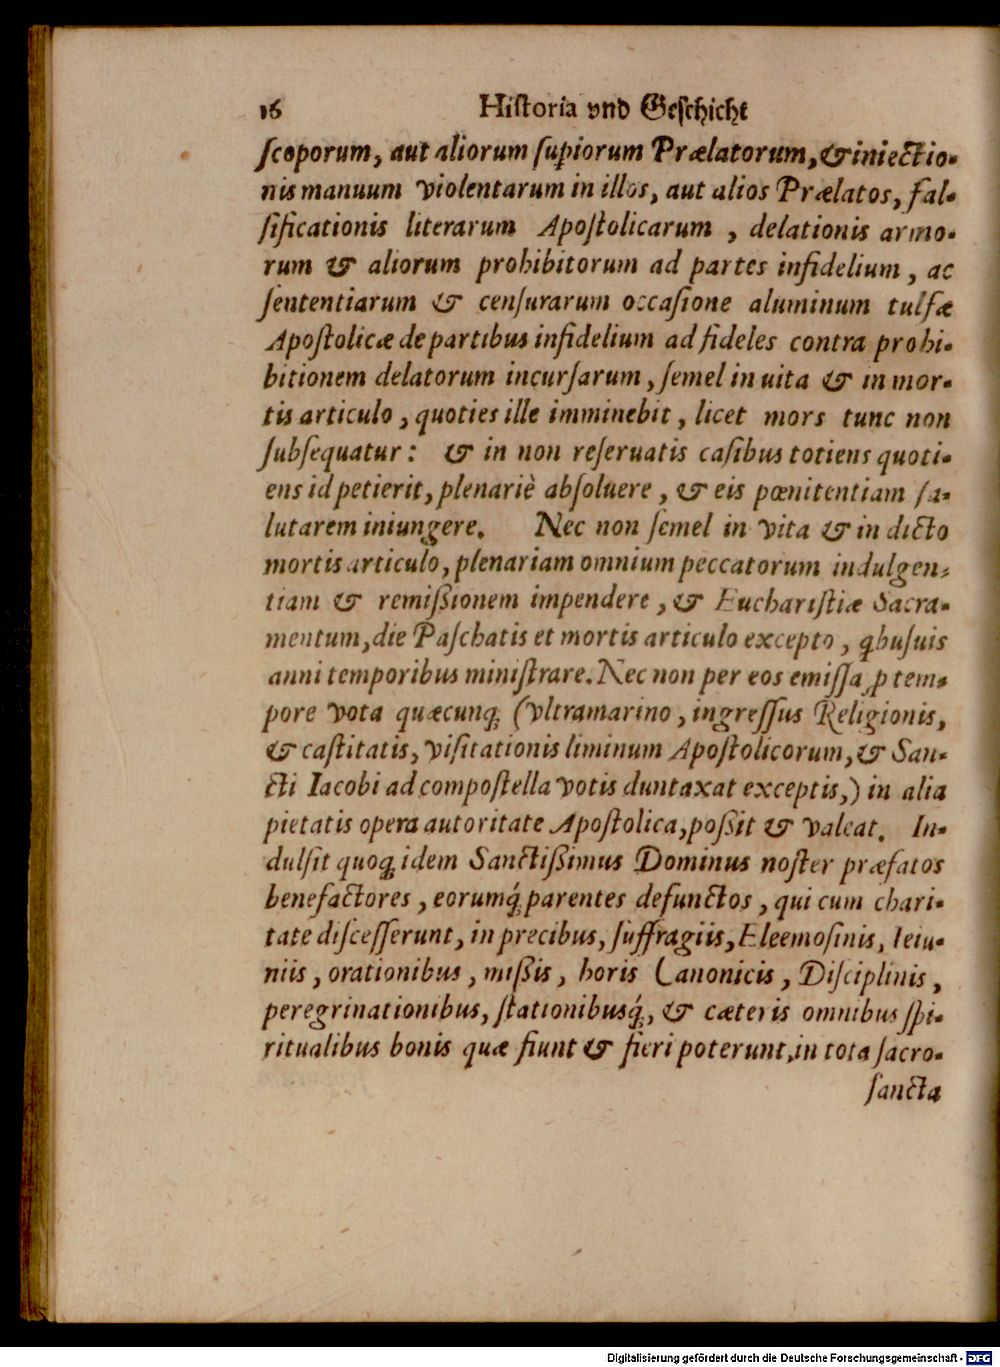 16 Historia vnd Geschicht
scoporum, aut aliorum supiorum Prælatorum, & iniectio-
nis manuum violentarum in illos, aut alios Prælatos, fal-
sificationis literarum Apostolicarum , delationis armo-
rum & aliorum prohibitorum ad partes infidelium , ac
sententiarum & censurarum occasione aluminum tulfæ
Apostolicæ de partibus infidelium ad fideles contra prohi-
bitionem delatorum incursarum , semel in uita & in mor-
tis articulo , quoties ille imminebit , licet mors tunc non
subsequatur : & in non reseruatis casibus totiens quoti-
ens id petierit, plenariè absoluere , & eis pœnitentiam sa-
lutarem iniungere. Nec non semel in vita & in dicto
mortis articulo, plenariam omnium peccatorum indulgen-
tiam & remißionem impendere , & Eucharistiæ Sacra-
mentum, die Paschatis et mortis articulo excepto , qbusuis
anni temporibus ministrare. Nec non per eos emissa ꝓ tem-
pore vota quæcunq; (vltramarino , ingressus Religionis,
& castitatis, visitationis liminum Apostolicorum, & San-
cti Iacobi ad compostella votis duntaxat exceptis,) in alia
pietatis opera autoritate Apostolica, poßit & valeat. In-
dulsit quoq; idem Sanctißimus Dominus noster præfatos
benefactores , eorumq́; parentes defunctos , qui cum chari-
tate discesserunt, in precibus, suffragiis, Eleemosinis, Ieiu-
niis , orationibus , mißis , horis Canonicis , Disciplinis ,
peregrinationibus, stationibusq́;, & cæteris omnibus spi-
ritualibus bonis quæ fiunt & fieri poterunt, in tota sacro-
sancta
Digitalisierung gefördert durch die Deutsche Forschungsgemeinschaft - DFG